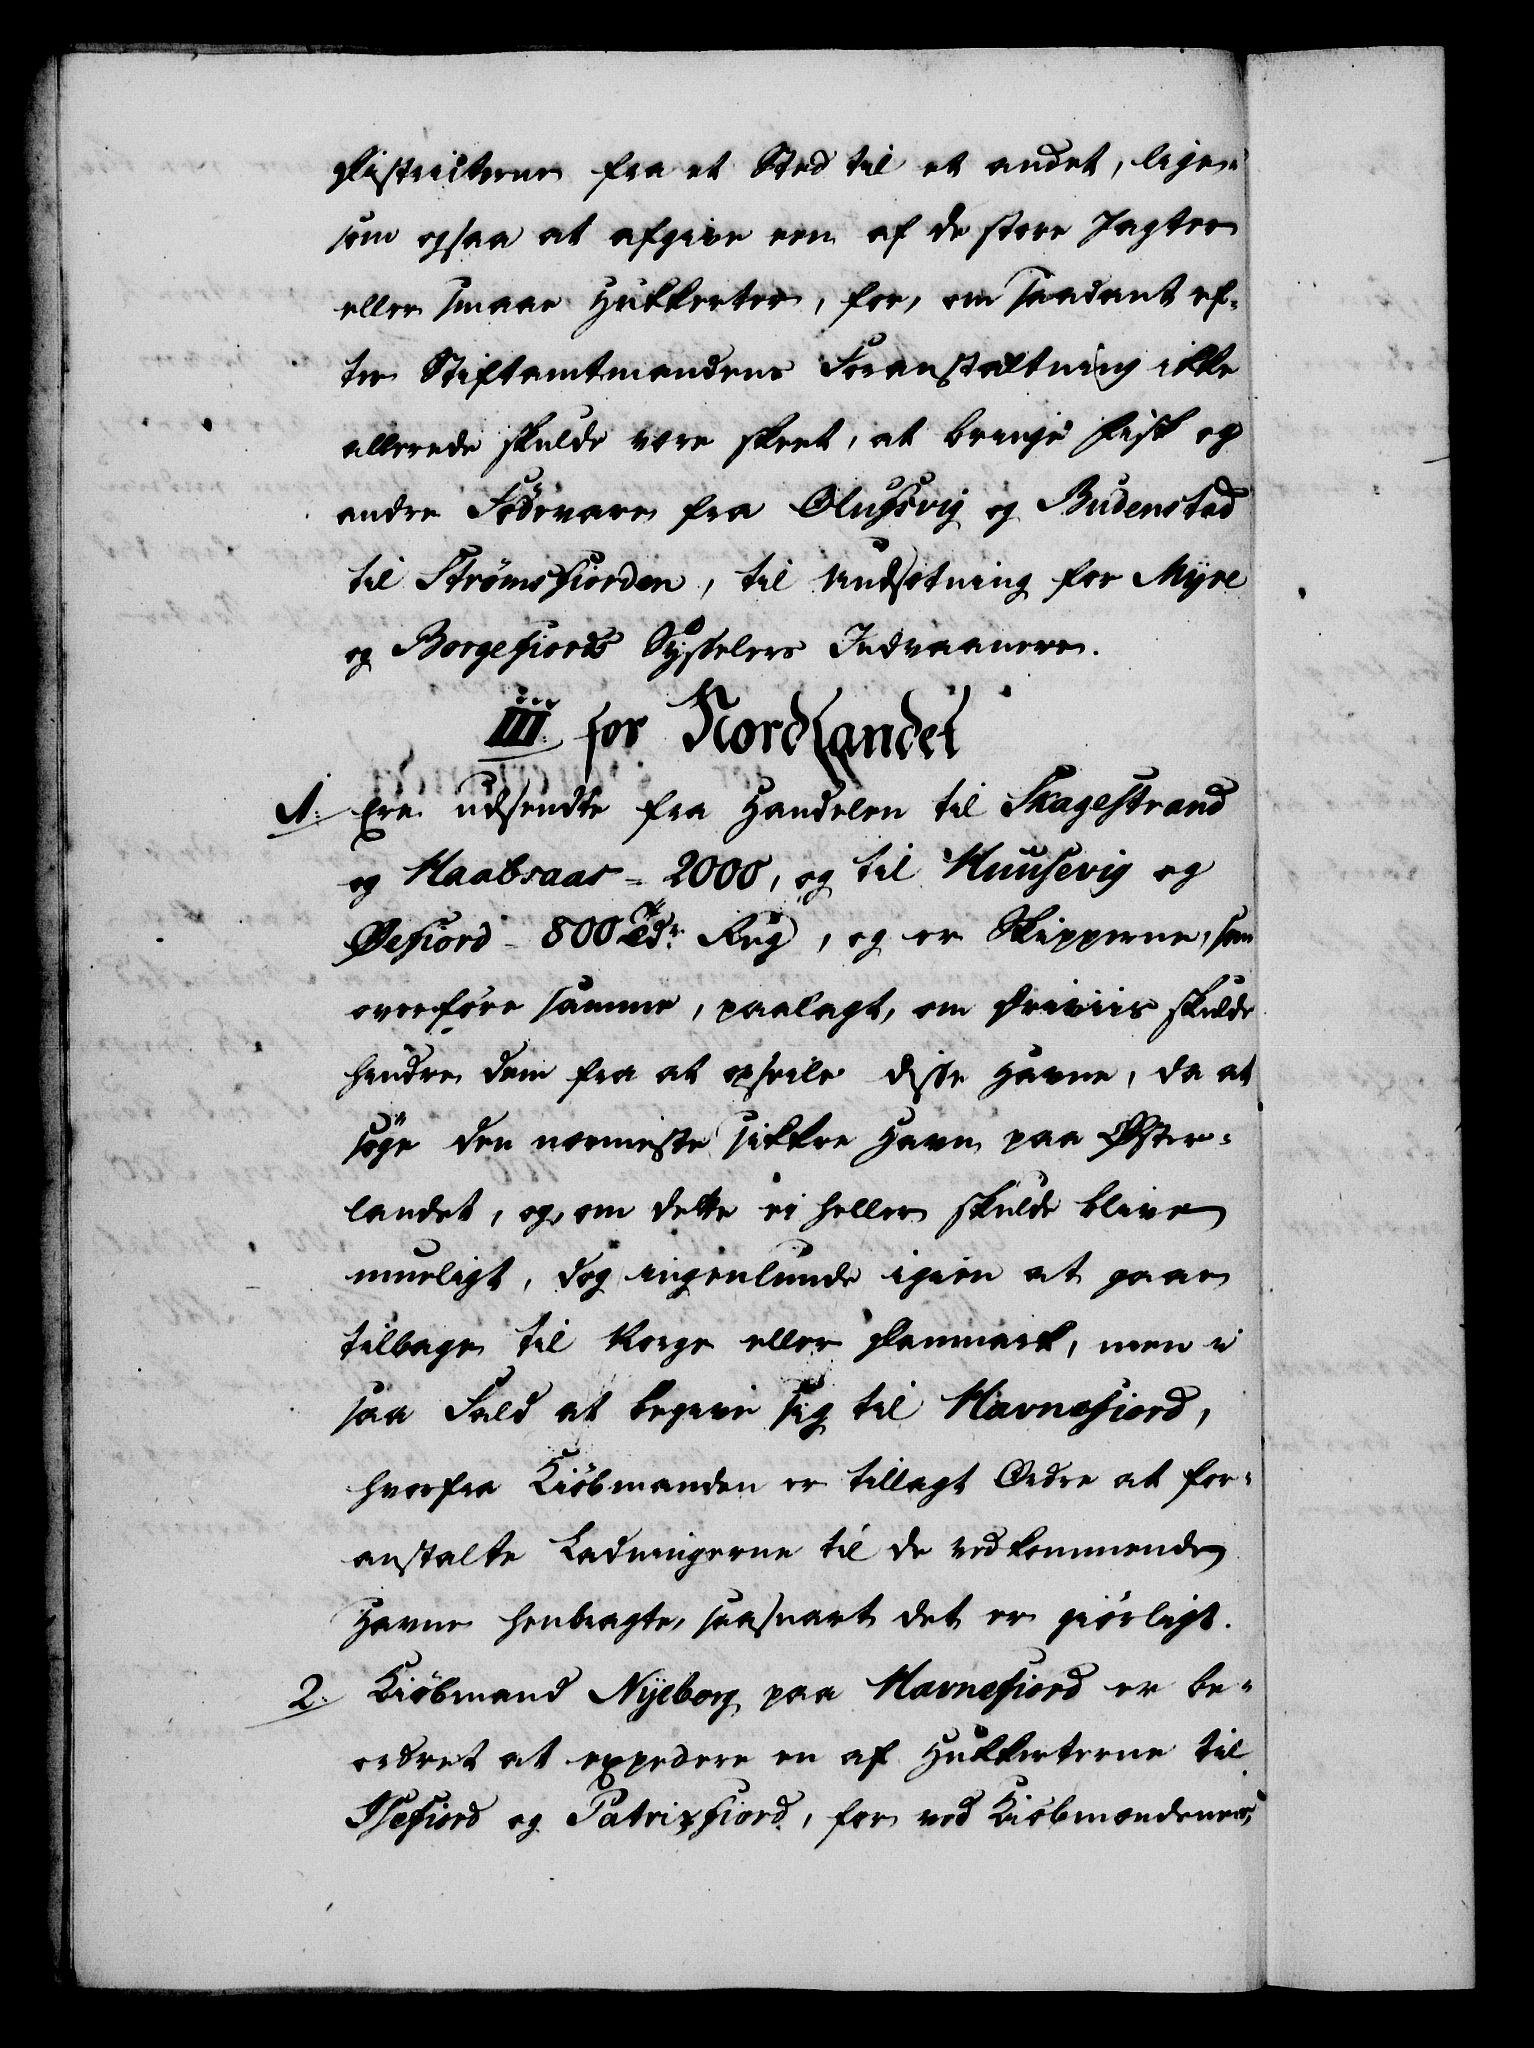 Districterne fra et Sted til et andet, lige-
som ogsaa at afgive een af de store Jagter
eller smaae Hukkerter, for, om saadant ef-
ter Stiftamtmandens Foranstaltning ikke
allerede skulde være skeet, at bringe Fisk og
andre Födevare fra Olufsvig og Budenstad
til Strømsfiorden, til Undsetning for Myre
og Borgefiords Systelers Indvaanere.
III. for Nordlandet
1. Ere udsendte fra Handelen til Skagestrand
og Haabsaas - 2000, og til Huusevig og
Øefiord - 800 Tdr. Rug, og er Skipperne, som
overföre samme, paalagt, om Driviis skulde
hindre dem fra at opseile disse Havne, da at
söge den nærmeste sikkre Havn paa Øster-
landet, og, om dette ei heller skulde blive
mueligt, dog ingenlunde igien at gaae
tilbage til Norge eller Danmark, men i
saa Fald at begive sig til Havnefiord,
hvorfra Kiöbmanden er tillagt Ordre at for-
anstalte Ladningerne til de vedkommende
Havne henbragte, saasnart det er giörligt.
2. Kiöbmand Nyeborg paa Havnefiord er be-
ordret at expedere en af Hukkerterne til
Isefiord og Patrixfiord, for ved Kiöbmændenes